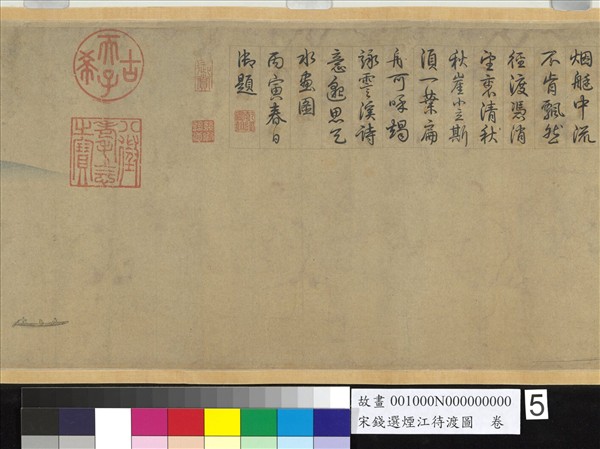 烟艇中流
不肯飄然
徑渡憑消
清秋
秋崖小立斯
須一葉扁
舟可呼
詠霅溪詩
意邈思
水畫圖
丙寅春日
御題
古希天子
八徵耄念之寶
故畫 001000N000000000
宋錢選煙江待渡圖 卷
5